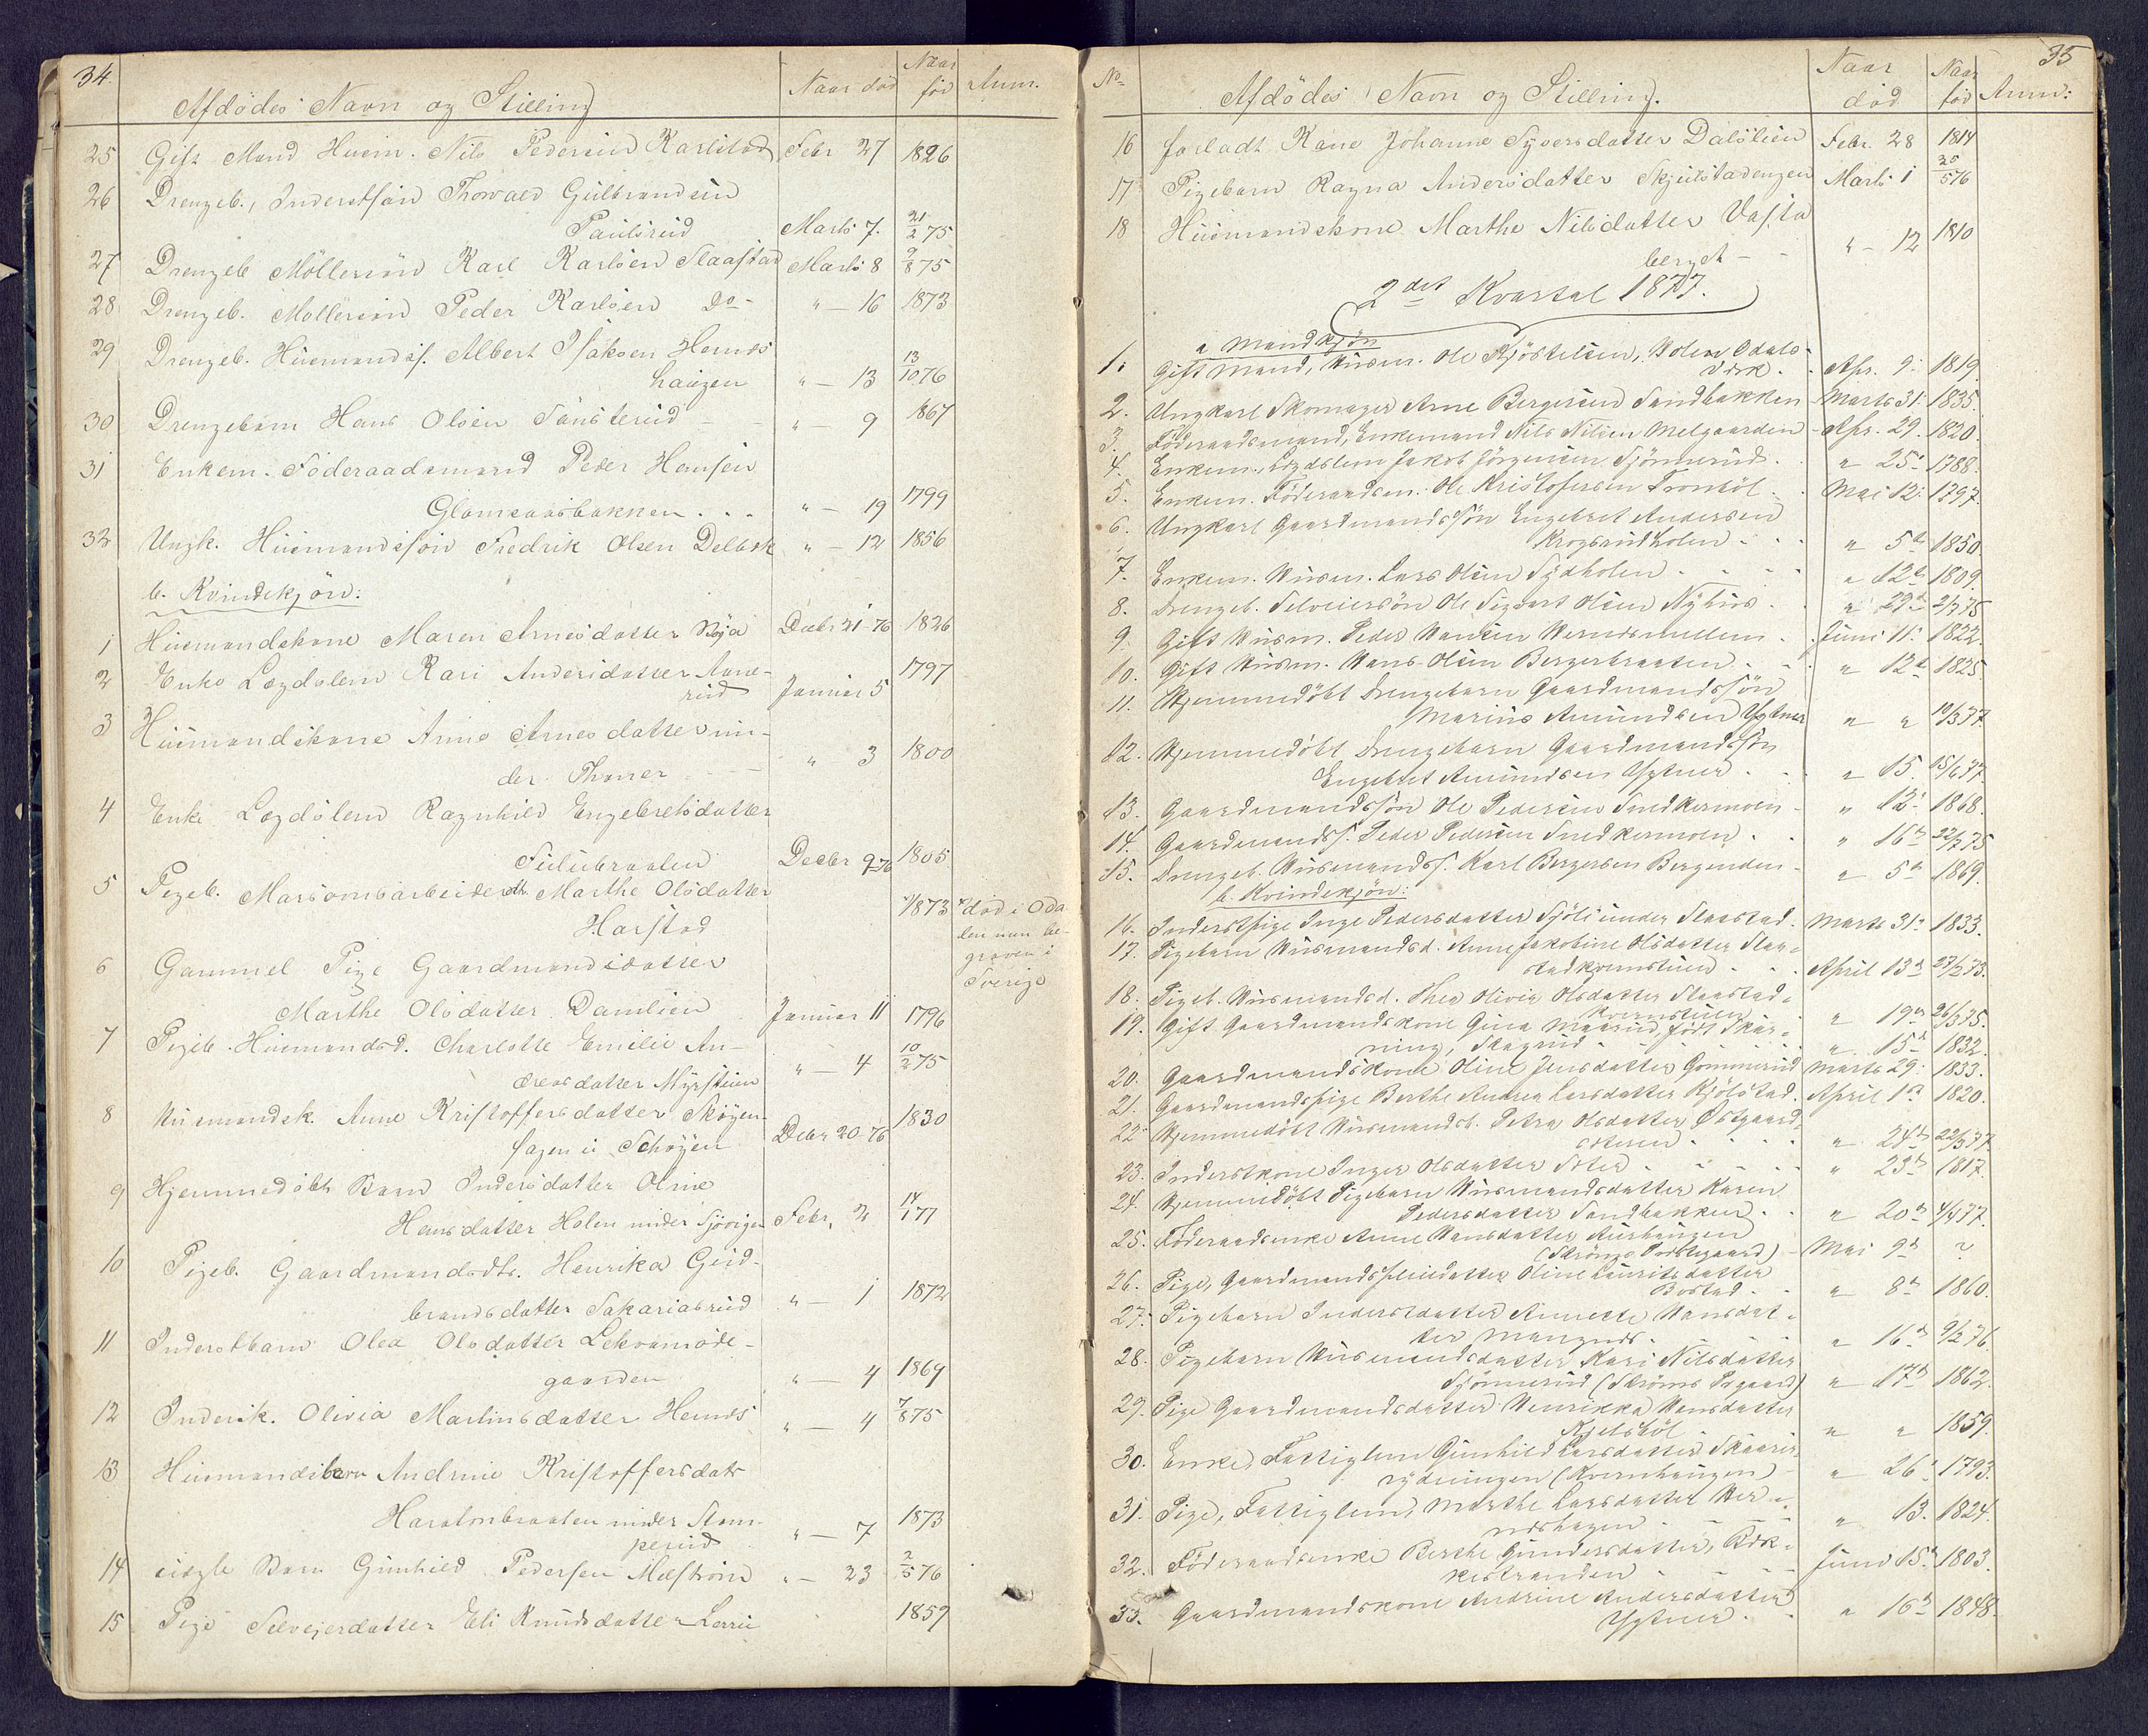 34.
Afdödes Navn og Stilling
Naar död
Naar föd
Anm.
25 Gift Mand Huusm. Nils Pedersen Karlstad Febr 27 1826
26 Drengeb., Inderstsön Thorvald Gulbrandsen
Paulsrud Marts 7. 21/2 75
27 Drengeb Möllersön Karl Karlsen Slaastad Marts 8 9/8 75
28 Drengeb. Möllersön Peder Karlsen Do - " - 16 1873
29 Drengeb. Huusmandss. Albert Isaksen Hernds
haugen " - 13 13/10 76
30 Drengebarn Hans Olsen Sönsterud - - " - 9 1867
31 Enkem. Föderaadsmand Peder Hansen
Glomsaasbakken . . . " - 19 1799
32 Ungk. Huusmandssön Fredrik Olsen Delbek " - 12 1856
b. Kvindekjön:
1 Huusmandskone Maren Arnesdatter Böja Decbr 21-76 1826
2 Enke Lægdslem Kari Andersdatter Aane-
rud Januar 5 1797
3 Huusmandskone Anne Arnesdatter un-
der Thorer - - " 3 1800
4 Enke Lægdslem Ragnhild Engebretsdatter
Sulubraaten Decbr 9-76 1805
5 Pigeb. Marsomsarbeiderdtr. Marthe Olsdatter
Harstad 1873 död i Oda
len men be-
graven i
Sverige
6 Gammel Pige Gaardmandsdatter
Marthe Olsdatter Damlien Januar 11 1796
7 Pigeb. Huusmandsd. Charlotte Emilie An-
dreasdatter Myrstuen " - 4 10/2 75
8 Huusmandsk. Anne Kristoffersdatter Sköyen-
hagen u Schöyen Decbr 20-76 1830
9 Hjemmedöbt Barn Indersdatter Oline
Hansdatter Holen under Sjöviger Febr. 2 14/1 77
10 Pigeb. Gaardmandsdtr. Henrika Guld-
brandsdatter Sakariasrud " - 1 1872
11 Inderstbarn Olea Olsdatter Lekvamöde-
gaarden " - 4 1869
12 Inderstk. Olivia Martinsdatter Hernds " - 4 7/8 75
13 Huusmandsbarn Andrine Kristoffersdatr
Haraldsbraaten under Stom-
perud " - 7 1873
14 uægte Barn Gunhild Pedersen Melström " - 23 2/5 76
15 Pige Selveierdatter Eli Knudsdatter Lerrie 1859
35
No
Afdödes Navn og Stilling.
Naar död
Naar föd
Anm:
16 forladt Kone Johanne Syversdatter Dalslien Febr. 28 1814
17 Pigebarn Ragna Andersdatter Skjulstadengen Marts 1 25/5 76
18 Huusmandskone Marthe Nilsdatter Vasta
berget - - " - 12 1810
2det Kvartal 1877.
a Mandkjön
1. Gift Mand, Huusm. Ole Kjöstelsen, Holen Odals
Værk. . Apr. 9. 1819.
2. Ungkarl Skomager Arne Bergersen Sandbakken Marts 31. 1835.
3. Föderaadsmand, Enkemand Nils Nilsen Melgaarden Apr. 29. 1820.
4. Enkem., Lægdslem Jakob Jörgensen Sjönnerud . " 25. 1788.
5. Enkem. Föderaadsm. Ole Kristofersen Tronböl . . Mai 12. 1797.
6. Ungkarl Gaardmandssön Engebret Andersen
Krogsrudholen . . . " 5de 1850.
7. Enkem. Huusm. Lars Olsen Sydholen . . . . " 12te 1809.
8. Drengeb. Selveiersön Ole Sigvart Olsen Nyhus . . " 29de 2/7 75
9. Gift Huusm. Peder Hansen Herndsmellem . . Juni 11. 1822.
10. Gift Huusm. Hans Olsen Bergerbraaten . . . " 12te 1825.
11. Hjemmedöbt Drengebarn Gaardmandssön
Marius Amundsen Ygtner " " 10/3 77
12. Hjemmedöbt Drengebarn Gaardmandssön
Engebret Amundsen Ygtner . . " 15. 15/6 77
13. Gaardmandssön Ole Pedersen Snedkermoen - " 12. 1868.
14. Gaardmandss. Peder Pedersen Snedkermoen . . " 16de 22/2 75
15. Drengeb. Huusmandss. Karl Bergersen Bergenden - " 5te 1869.
b. Kvindekjön:
16. Inderstpige Inge Pedersdatter Sjöli under Slaastad . Marts 31. 1833.
17. Pigebarn Huusmandsd. Anne Jakobine Olsdatter Slaa-
stadkvernstuen . . . April 13de 27/2 73.
18. Pigeb. Huusmandsd. Thea Olivia Olsdatter Slaastad-
kvernstuen . " 19de 26/3 75.
19. Gift Gaardmandskone Gina Maarud, födt Skur-
ning, Slagrud . . . . . . " 15de 1832.
20. Gaardmandskone Oline Jensdatter Gommerud Marts 29. 1833.
21. Gaardmandspige Berthe Andrea Larsdatter Kjölstad. April 1ste 1820.
22. Hjemmedöbt Huusmandsb. Petra Olsdatter Östgaard-
steren . . . . " 24de 22/3 77
23. Inderstkone Inger Olsdatter Seter . . . . . " 23de 1817.
24. Hjemmedöbt Pigebarn Huusmandsdatter Karen
Pedersdatter Sandbakken . . " 20de 4/4 77.
25. Föderaadsenke Anne Hansdatter Aurhaugen
(Ströms Præstegaard) - Mai 9de ?
26. Pige, Gaardmandspleiedatter Oline Lauritsdatter
Bostad . . " 8de 1860.
27. Pigebarn Inderstdatter Annette Hansdat-
ter Mangnes. . . . " 16de 9/2 76.
28. Pigebarn Huusmandsdatter Kari Nilsdatter
Sjönnerud (Ströms Prgaard) " 17de 1862.
29. Pige Gaardmandsdatter Henrikka Hansdatter
Kjelsböl . " " 1859.
30. Enke, Fattiglem Gunhild Larsdatter Skaaris
rydningen (Kvernhaugen) - " 26. 1793.
31. Pige, Fattiglem, Marthe Larsdatter Her-
ndshagen . . - - " 13. 1824.
32. Föderaadsenke Berthe Gundersdatter, Bæk-
kestranden . - - - Juni 15. 1803.
33. Gaardmandskone Andrine Andersdatter
Ygtner . . " 16de 1848.